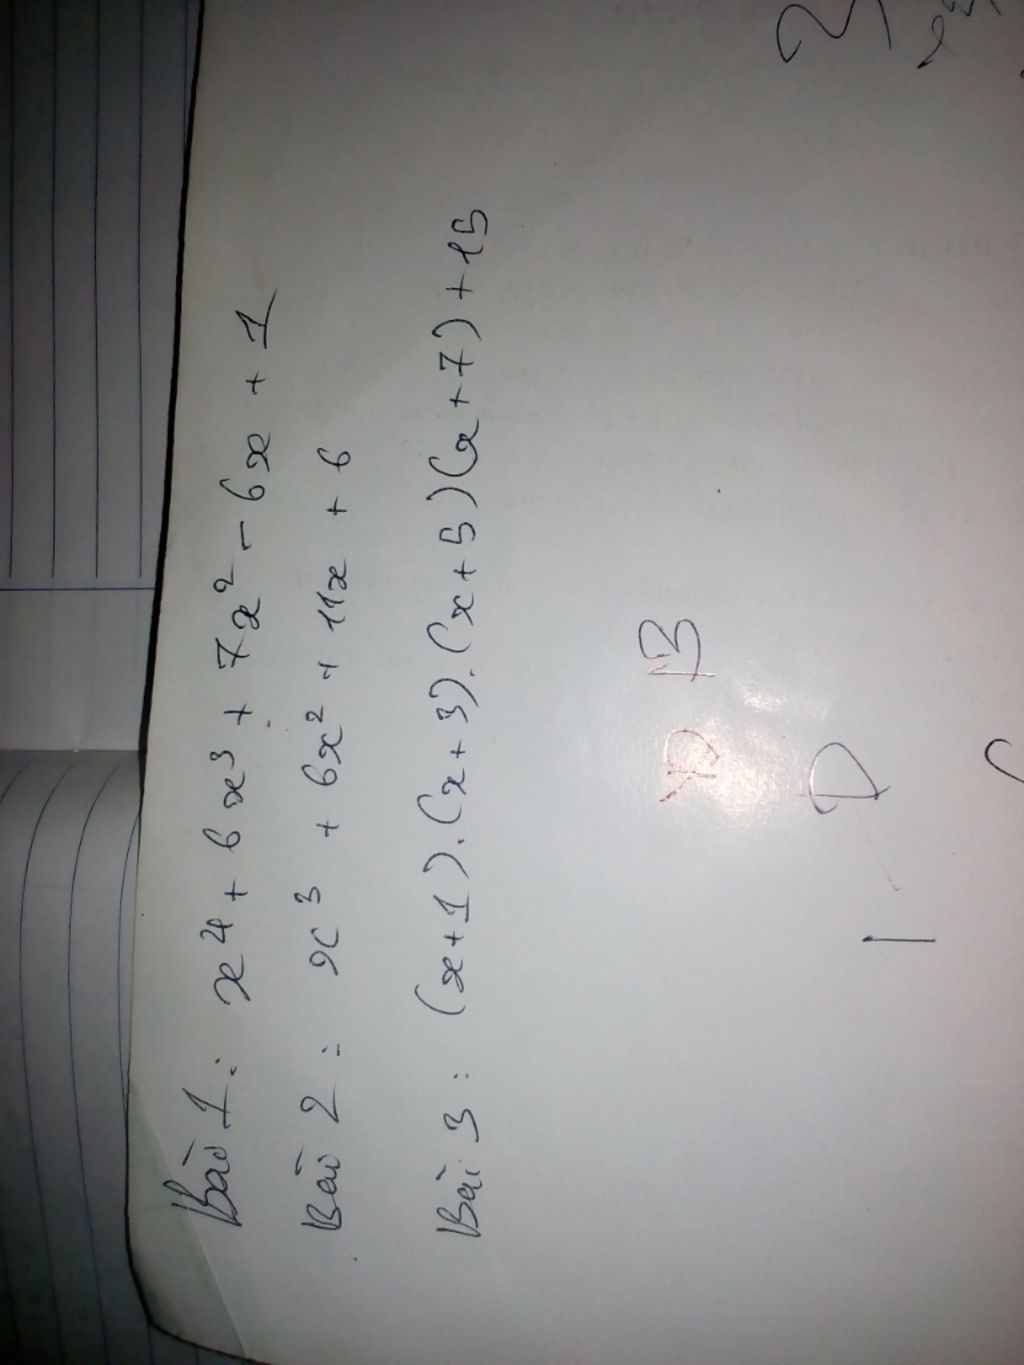 Bài 1: x⁴ + 6x³ + 7x² - 6x + 1
Bài 2: x³ + 6x² + 11x + 6
Bài 3: (x+1).(x+3).(x+5)(x+7)+15
B
D
1